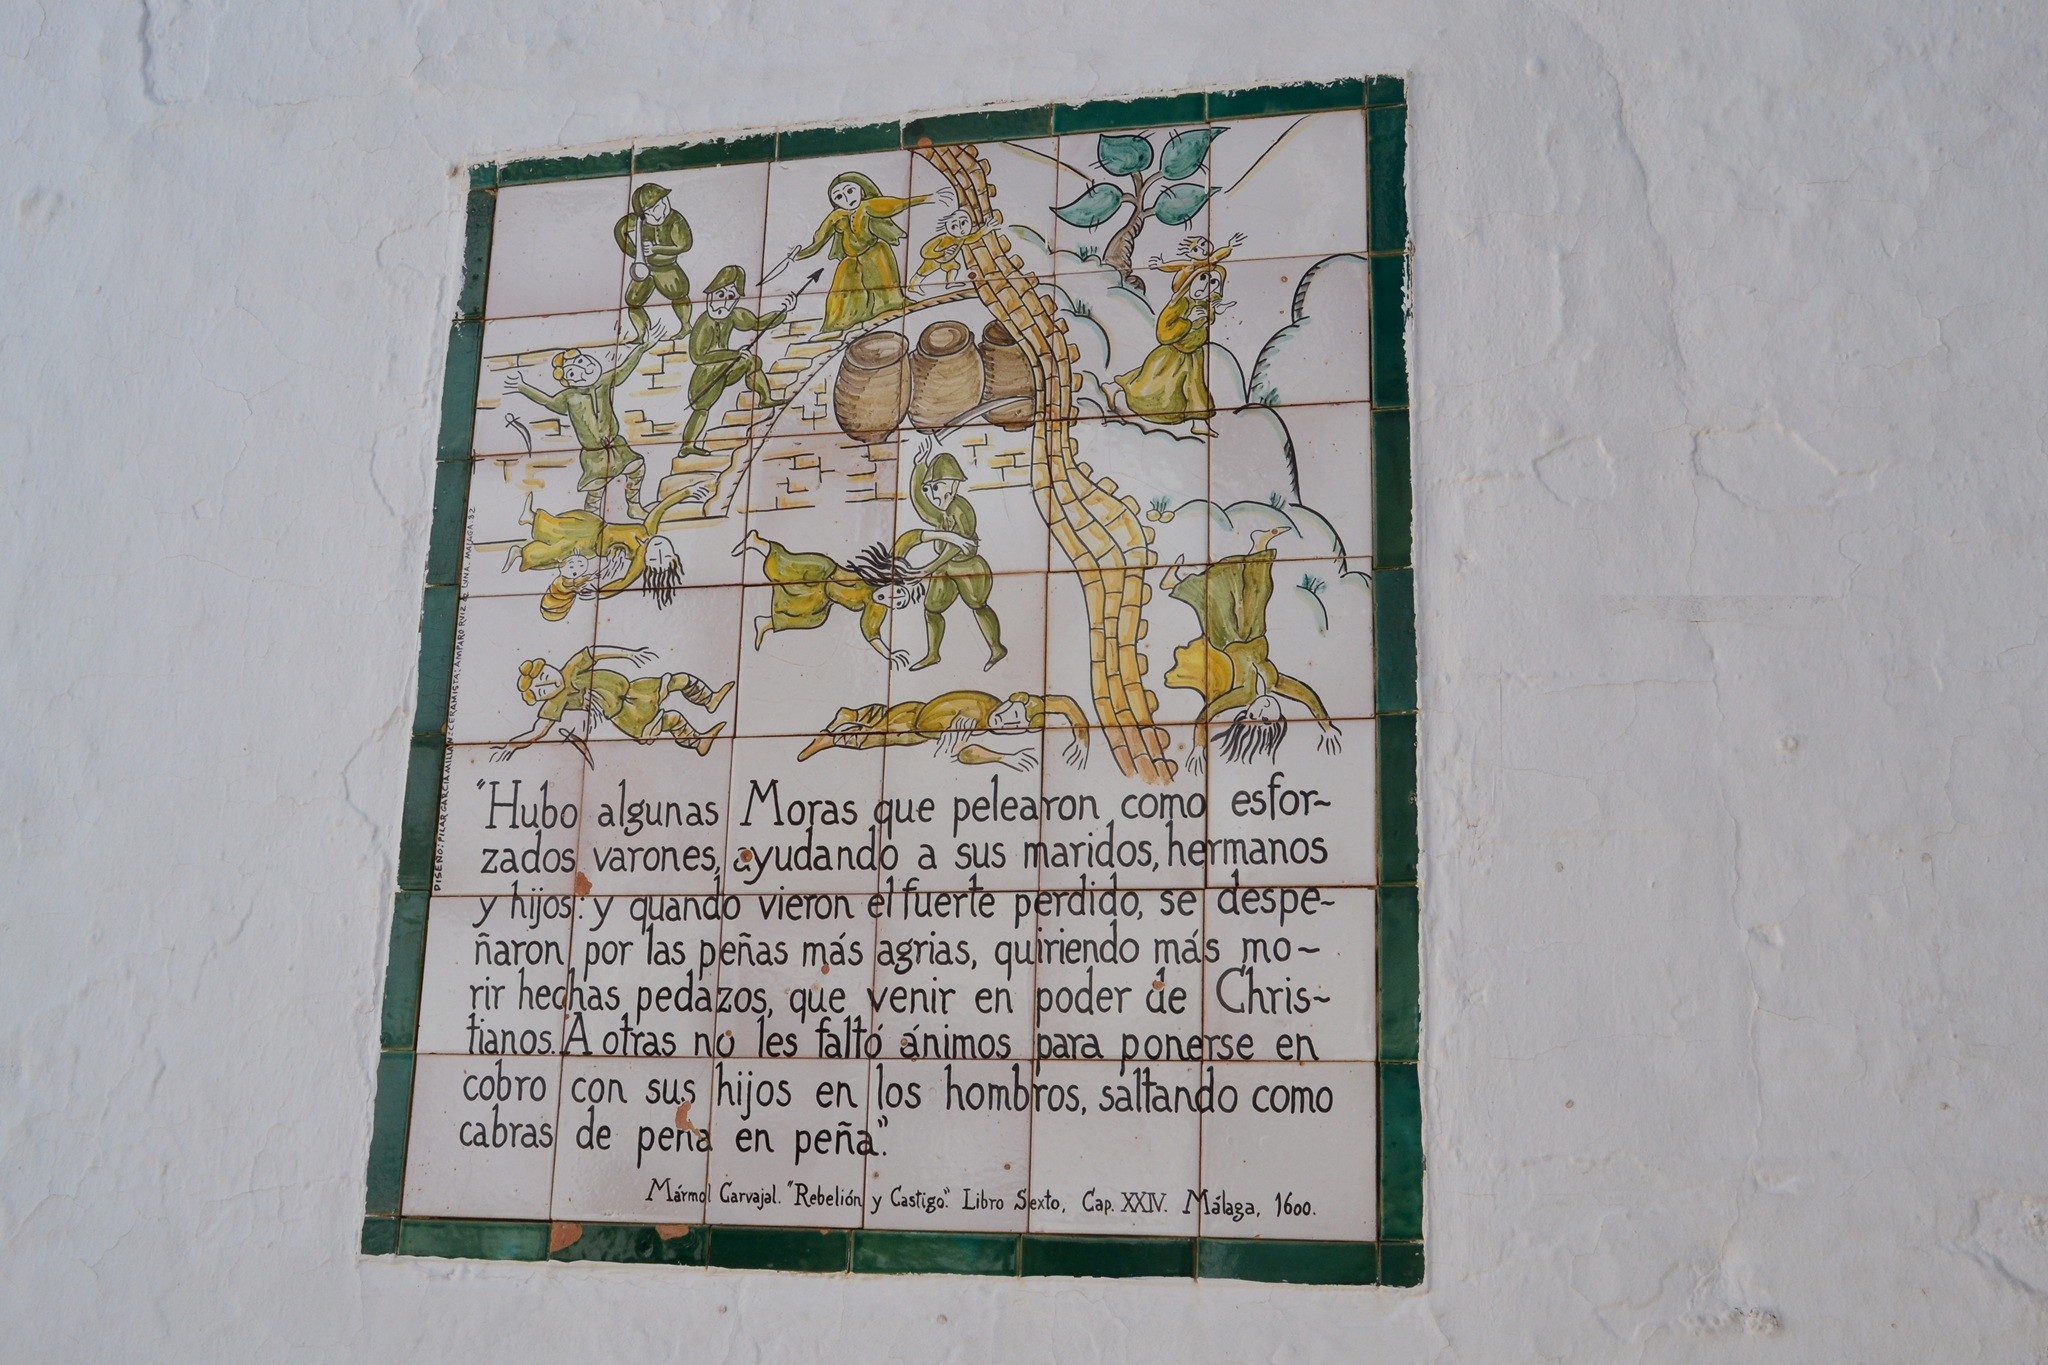 "Hubo algunas Moras que pelearon como esfor~
zados varones, ayudando a sus maridos, hermanos
y hijos: y quando vieron el fuerte perdido, se despe~
ñaron por las peñas más agrias, quiriendo más mo~
rir hechas pedazos, que venir en poder de Chris~
tianos. A otras no les faltó ánimos para ponerse en
cobro con sus hijos en los hombros, saltando como
cabras de peña en peña."
Mármol Carvajal. "Rebelión y Castigo". Libro Sexto, Cap. XXIV. Málaga, 1600.
DISEÑO: PILAR GARCÍA MILLÁN: CERAMISTA: AMPARO RUIZ de LUNA. MALAGA. 82